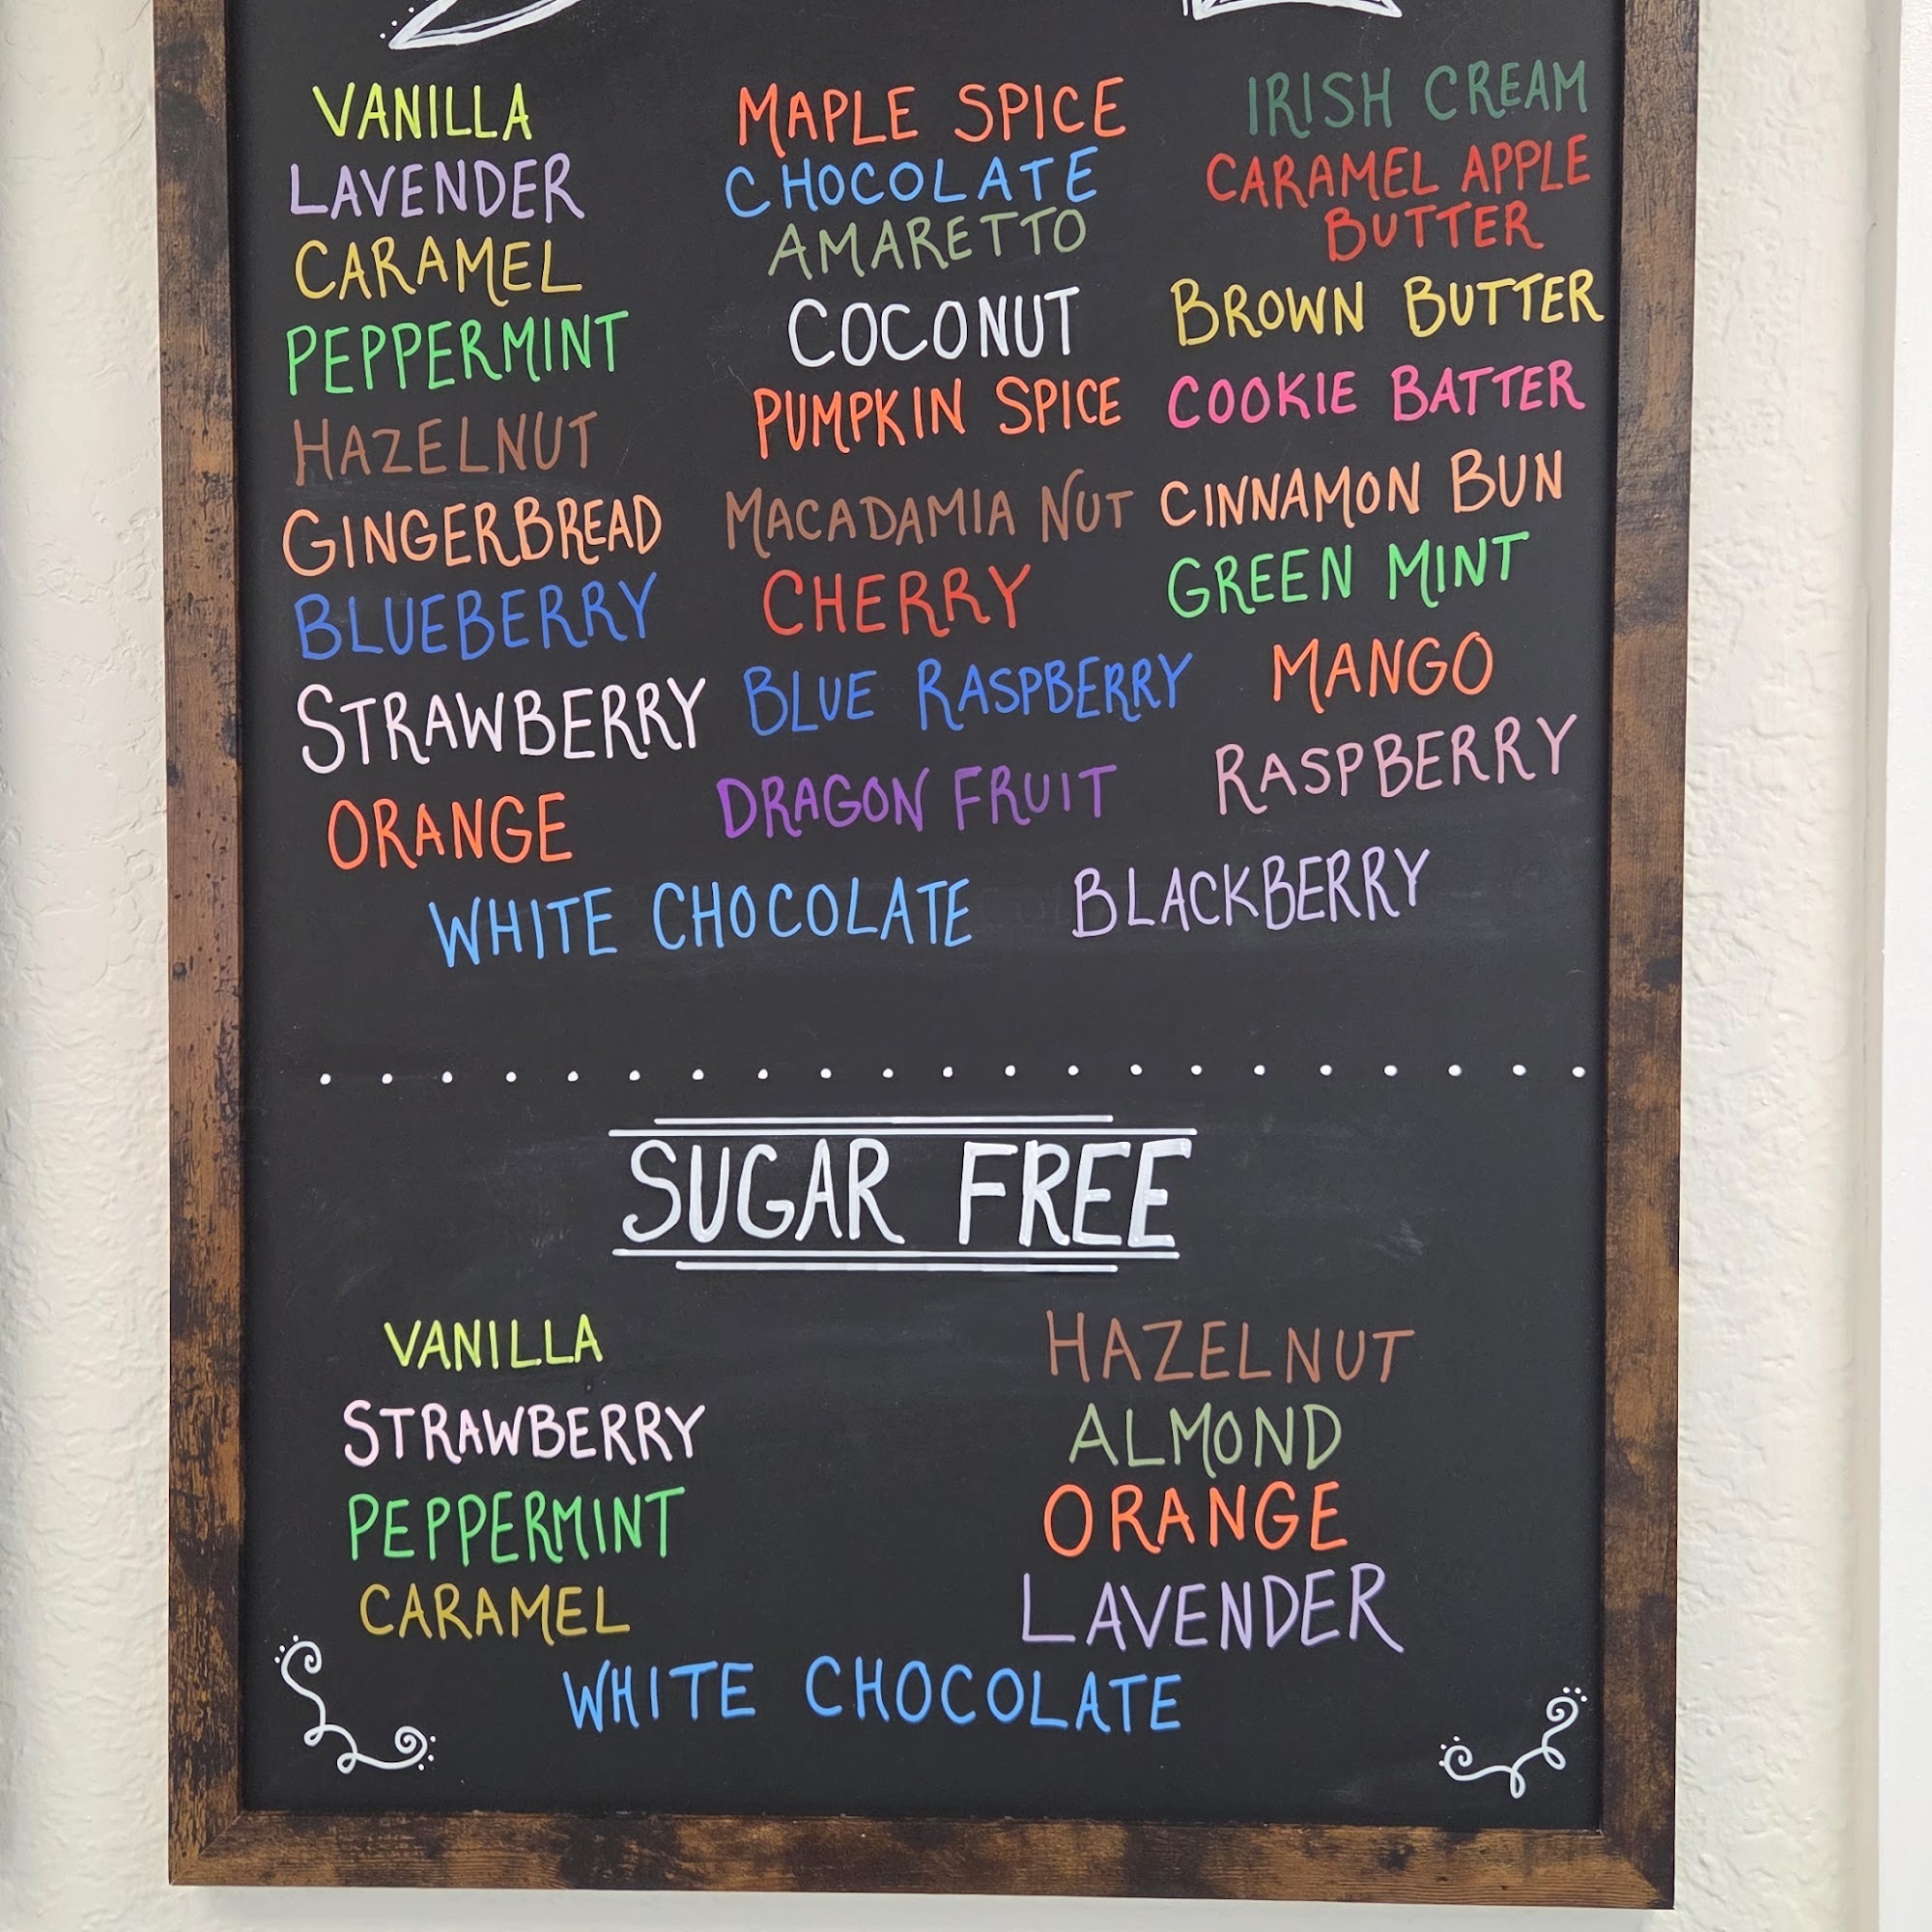 VANILLA
LAVENDER
CARAMEL
PEPPERMINT
HAZELNUT
GINGERBREAD
BLUEBERRY
STRAWBERRY
ORANGE
MAPLE SPICE
CHOCOLATE
AMARETTO
COCONUT
PUMPKIN SPICE
MACADAMIA NUT
CHERRY
BLUE RASPBERRY
DRAGON FRUIT
IRISH CREAM
CARAMEL APPLE
BUTTER
BROWN BUTTER
COOKIE BATTER
CINNAMON BUN
GREEN MINT
MANGO
RASPBERRY
WHITE CHOCOLATE
BLACKBERRY
SUGAR FREE
VANILLA
STRAWBERRY
PEPPERMINT
CARAMEL
HAZELNUT
ALMOND
ORANGE
LAVENDER
WHITE CHOCOLATE